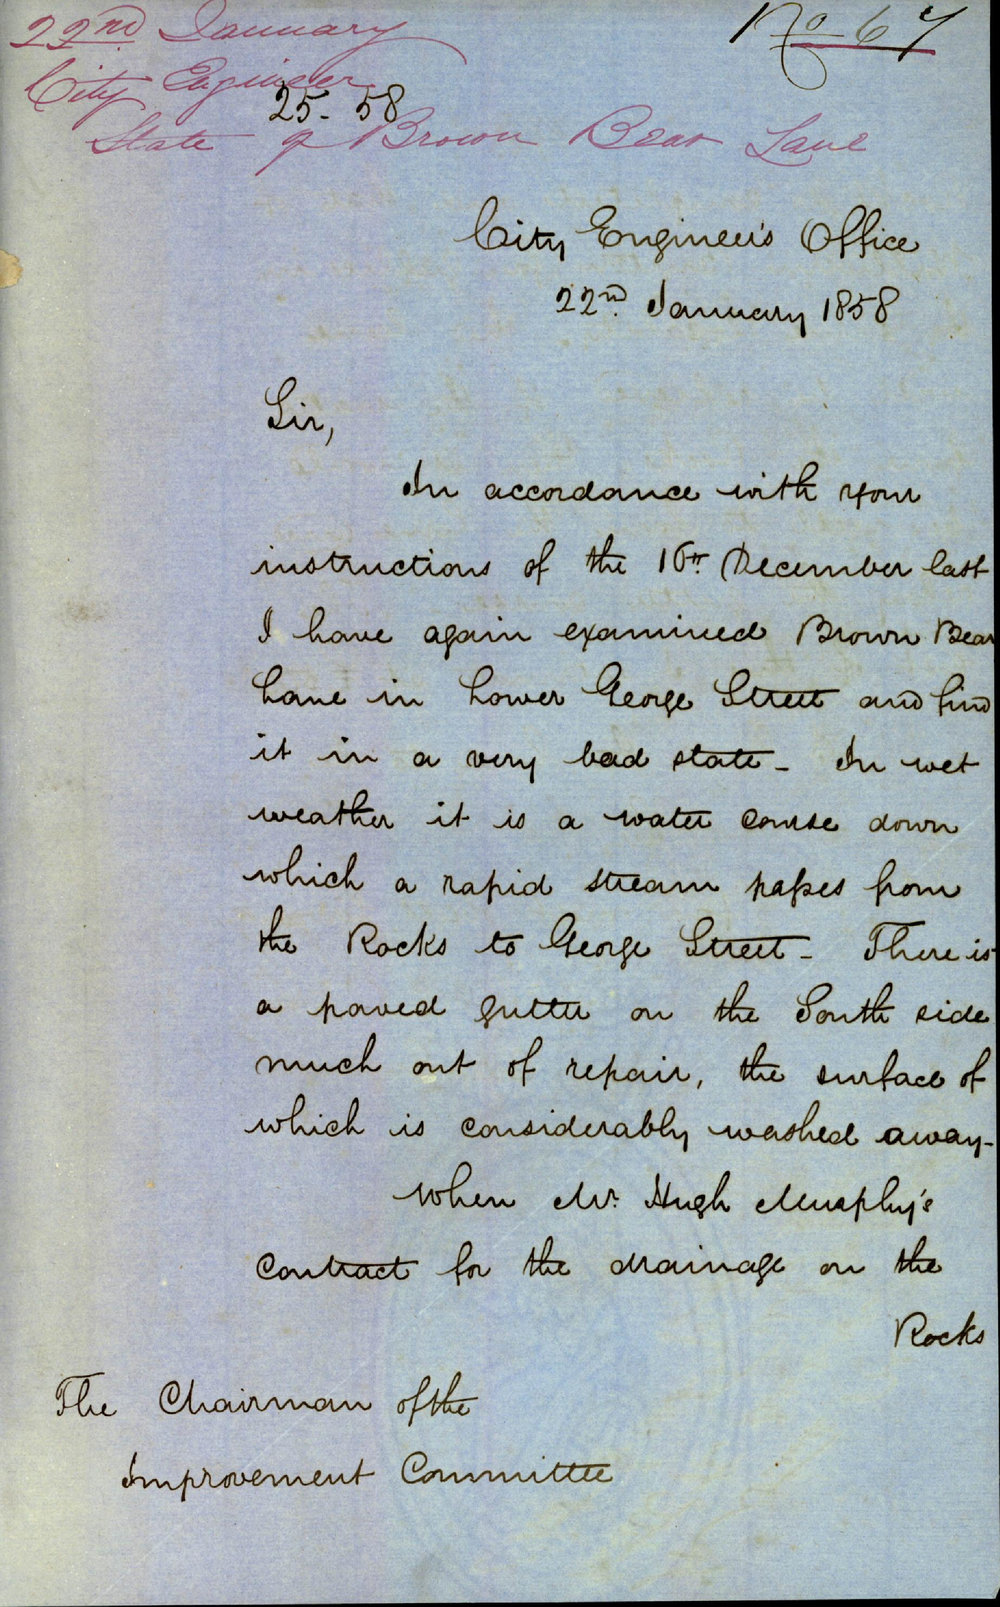 22nd January
No 67
City Engineer
25-58
State of Brown Bear Lane
City Engineer's Office
22nd January 1858
Sir,
In accordance with your
instructions of the 16th December last
I have again examined Brown Bear
Lane in Lower George Street and find
it in a very bad state - In wet
weather it is a water course down
which a rapid stream passes from
the Rocks to George Street - There is
a paved gutter on the South side
much out of repair, the surface of
which is considerably washed away -
When Mr. Hugh Murphy's
contract for the drainage on the
Rocks
The Chairman of the
Improvement Committee